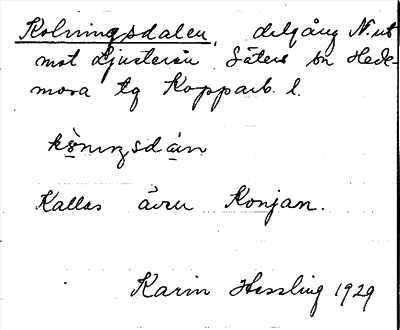 Kolningsdalen, dalgång N. ut
mot Ljustern Säters sn Hede-
mora tg Kopparb. l.
kò̤ningsdàn
Kallas även Konjan.
Karin Hessling 1929